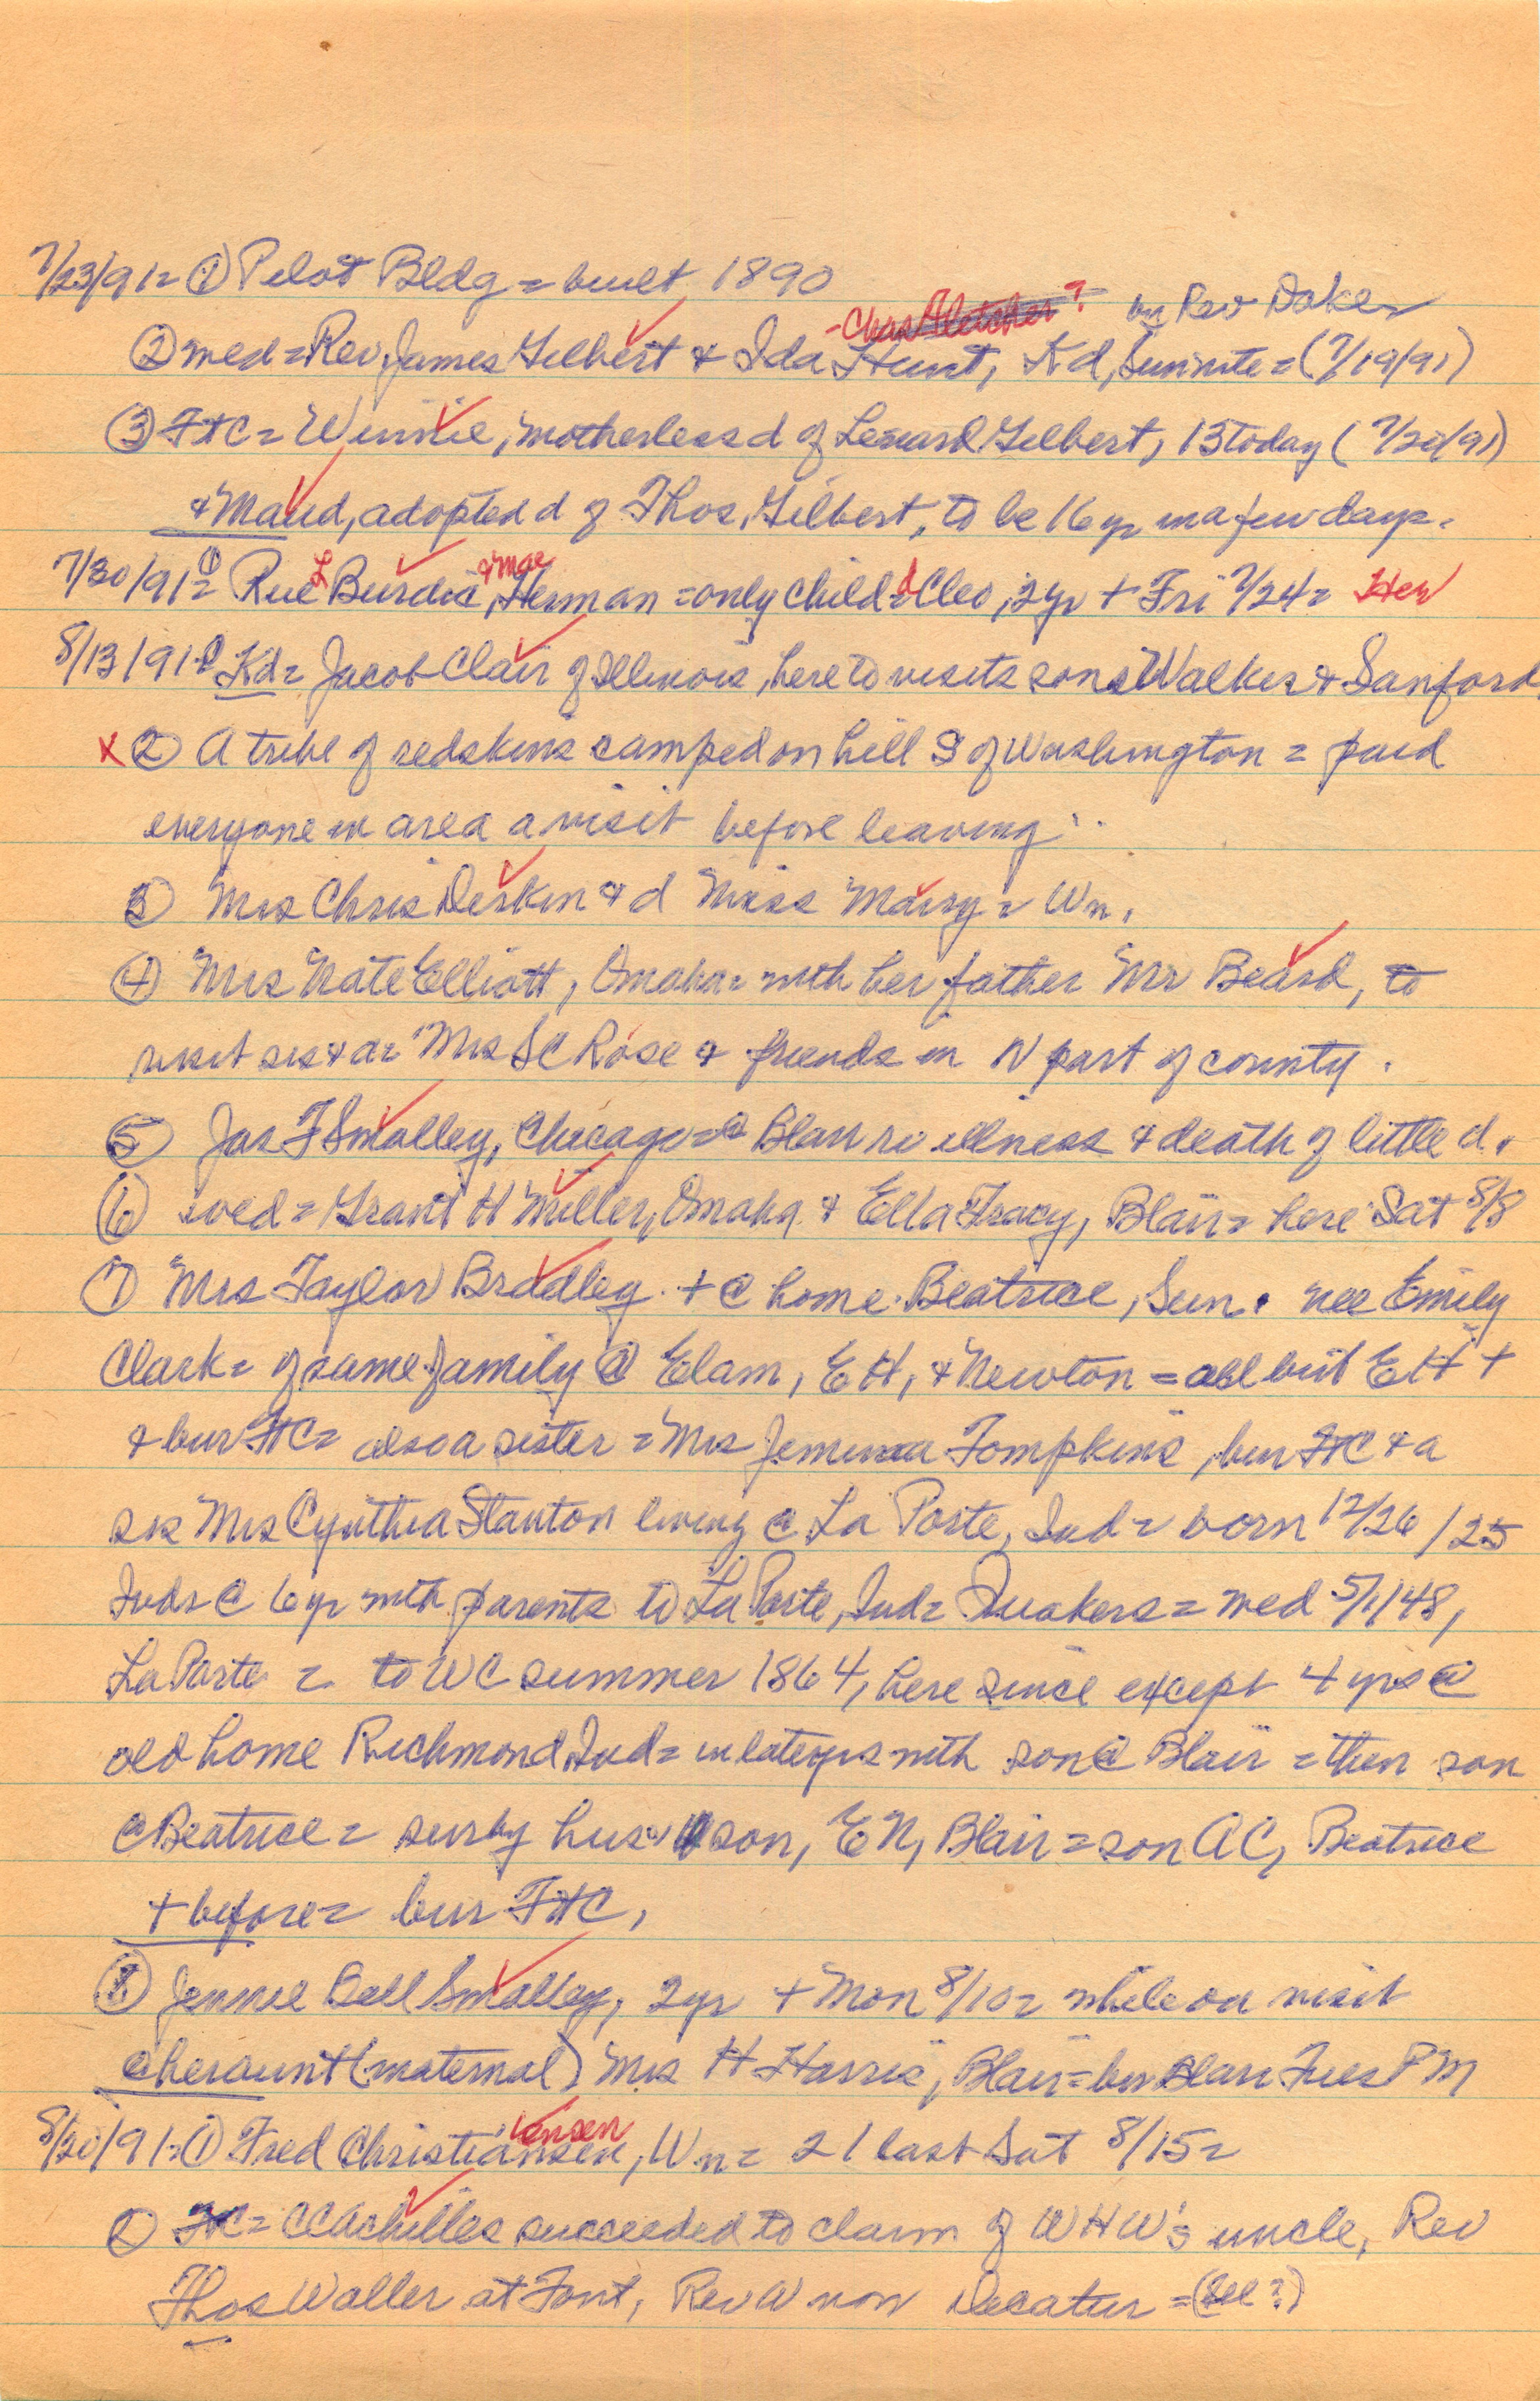 7/23/91= ① Pilot Bldg = built 1890
-Chas Fletcher? by Rev Doken
② wed = Rev James Gilbert & Ida Hunt, Kd, Sunnite = (7/19/91)
③ FtC = Winnie, motherless d of Lenard Gilbert, 13 today (7/20/91)
& Maud, adopted d of Thos. Gilbert, to be 16 yr in a few days.
& Mae
7/30/91= ① Rue L Burdic, Herman = only child = d Cleo, 2 yr + Fri 7/24 = Her
8/13/91 ① Kd = Jacob Clair of Illinois, here to visits sons Walker & Sanford
x ② A tribe of redskins camped on hill S of Washington = paid
everyone in area a visit before leaving..
③ Mrs Chris Derken & d Miss Mary = Wn.
④ Mrs Nate Elliott, Omaha = with her father Mr Beard, to
visit sis & d = Mrs SC Rose & friends in N part of county.
⑤ Jas F Smalley, Chicago = @ Blair re illness & death of little d.
⑥ wed = Grant H Miller, Omaha & Ella Tracy, Blair = here Sat 8/8
⑦ Mrs Taylor Bradley + @ home Beatrice, Sun. nee Emily
Clark = of same family @ Elam, EH, & Newton = all but EH +
& bur FtC = also a sister = Mrs Jemima Tompkins, bur FtC & a
sis Mrs Cynthia Stanton living @ La Porte, Ind = born 12/26/25
Ind = @ 6 yr with parents to La Porte, Ind = Quakers = wed 5/1/48,
La Porte = to WC summer 1864, here since except 4 yrs @
old home Richmond, Ind = in late yrs with son @ Blair = then son
@ Beatrice = sur by hus & son, EN, Blair = son AC, Beatrice
+ before = bur FtC,
⑧ Jennie Bell Smalley, 2 yr + Mon 8/10 = while on visit
@ her aunt (maternal) Mrs H Harris, Blair = bur Blair Tues PM
ensen
8/20/91= ① Fred Christiansen, Wn = 21 last Sat 8/15 =
② FtC = CC Achilles succeeded to claim of WHW's uncle, Rev
Thos Waller at Font, Rev W now Decatur = (Sec?)